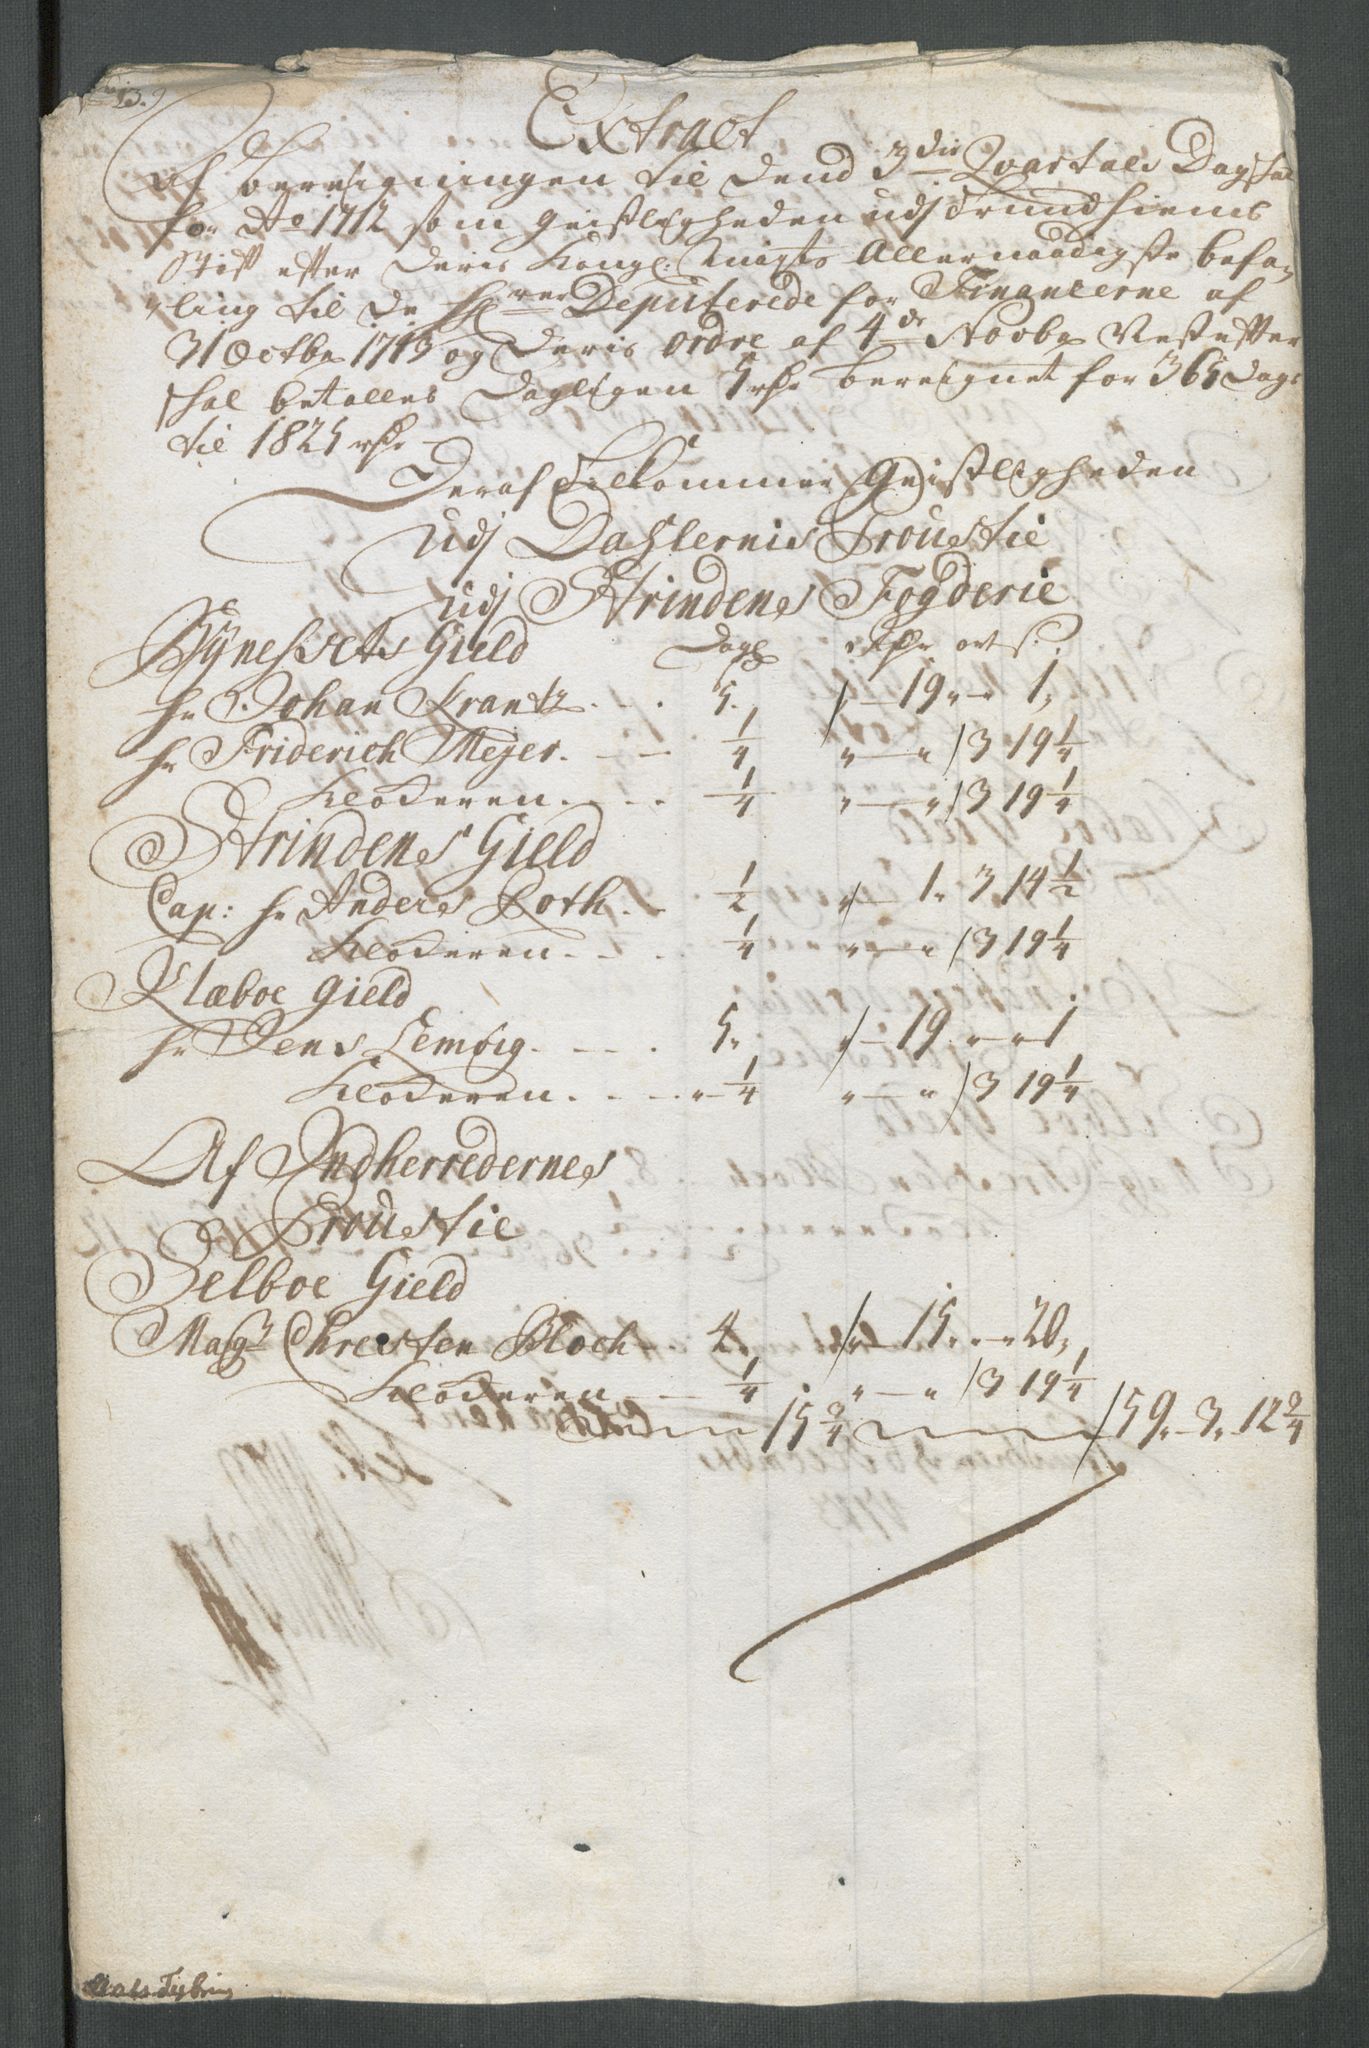 Extract
af beregningen til dend 3die Qvartals Dagskal
for Ao 1712 som geistligheden udj Trundhiems
Stift efter deris Kongl: Maÿts Allernaadigste befa-
ling til de Hrrer Deputerede for Financerne af
31 Octbr 1713 og deris ordre af 4de Novbr Nestefter
skal betalles Dagligen 5 rdr beregnet for 365 dage
til 1825 rdr
Deraf tilkommer Geistligheden
Udj Dahlernis Proustie
Udj Strindens Fogderie
Bÿnessets Gield Dagl rdr ort s
hr Johan Krantz 5. 19 „ 1
hr Friderich Meÿer 1/4 „ „ 3 19 1/4
Klockeren 1/4 „ „ 3 19 1/4
Strindens Gield
Cap: hr Anders Roth 1/2 „ 1 „ 3 14 1/2
Klockeren 1/4 „ „ 3 19 1/4
Klæboe Gield
hr Jens Lemvig 5 „ 19 „ „ 1
Klockeren 1/4 „ „ 3 19 1/4
Af Indherredernes
Proustie
Selboe Gield
Magr Christen Bloch 4 „ 15 „ „ 20
Klockeren 1/4 „ „ 3 19 1/4
15 3/4 59 „ 3 „ 12 3/4